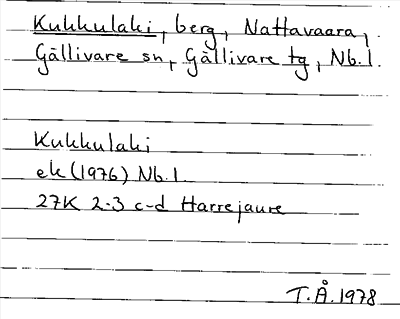 Kukkulaki, berg, Nattavaara,
Gällivare sn, Gällivare tg, Nb.l.
Kukkulaki
ek (1976) Nb.l
27K 2-3 c-d Harrejaure
T.Å. 1978